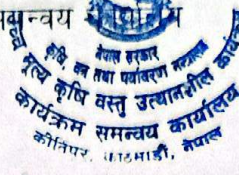 नेपाल सरकार
कृषि, वन तथा पर्यावरण मन्त्रालय
मूल्य कृषि वस्तु उत्थानशील
कार्यक्रम समन्वय कार्यालय
कीर्तिपुर, काठमाडौं, नेपाल